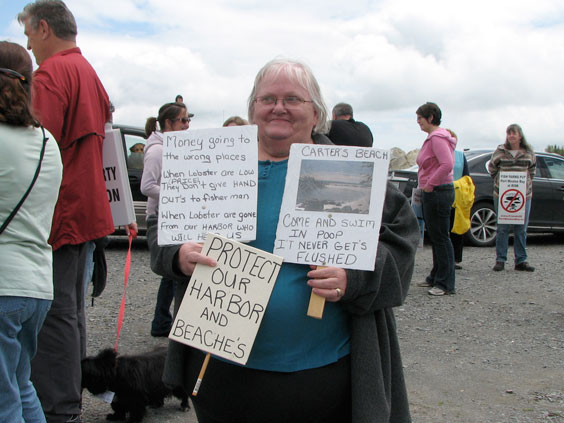 Money going to
the wrong places
When Lobster are Low
(PRICE)
They Don't give HAND
OUT'S to fisher men
When Lobster are gone
From our HARBOR who
WILL US
CARTER'S BEACH
COME AND SWIM
IN POOP
IT NEVER GET'S
FLUSHED
PROTECT
OUR
HARBOR
AND
BEACHE'S